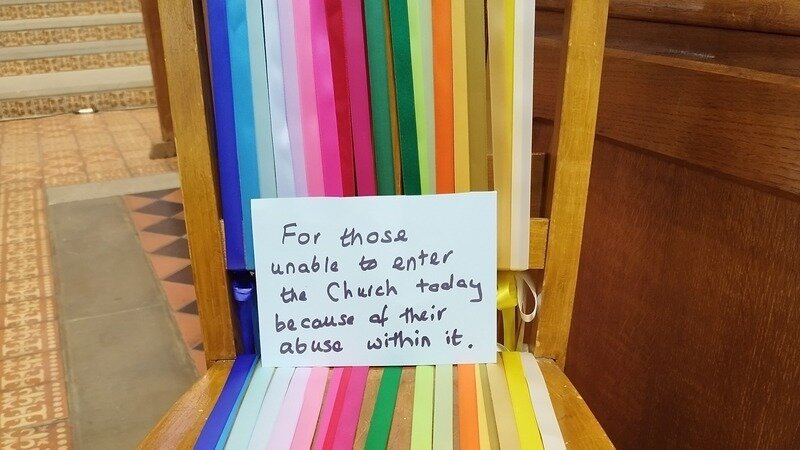 For those
unable to enter
the Church today
because of their
abuse within it.